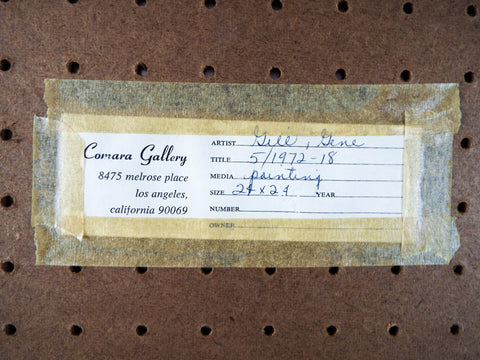 Comara Gallery
8475 melrose place
los angeles,
california 90069
ARTIST Gill, Gene
TITLE 5/1972-18
MEDIA painting
SIZE 24 x 24 YEAR
NUMBER
OWNER